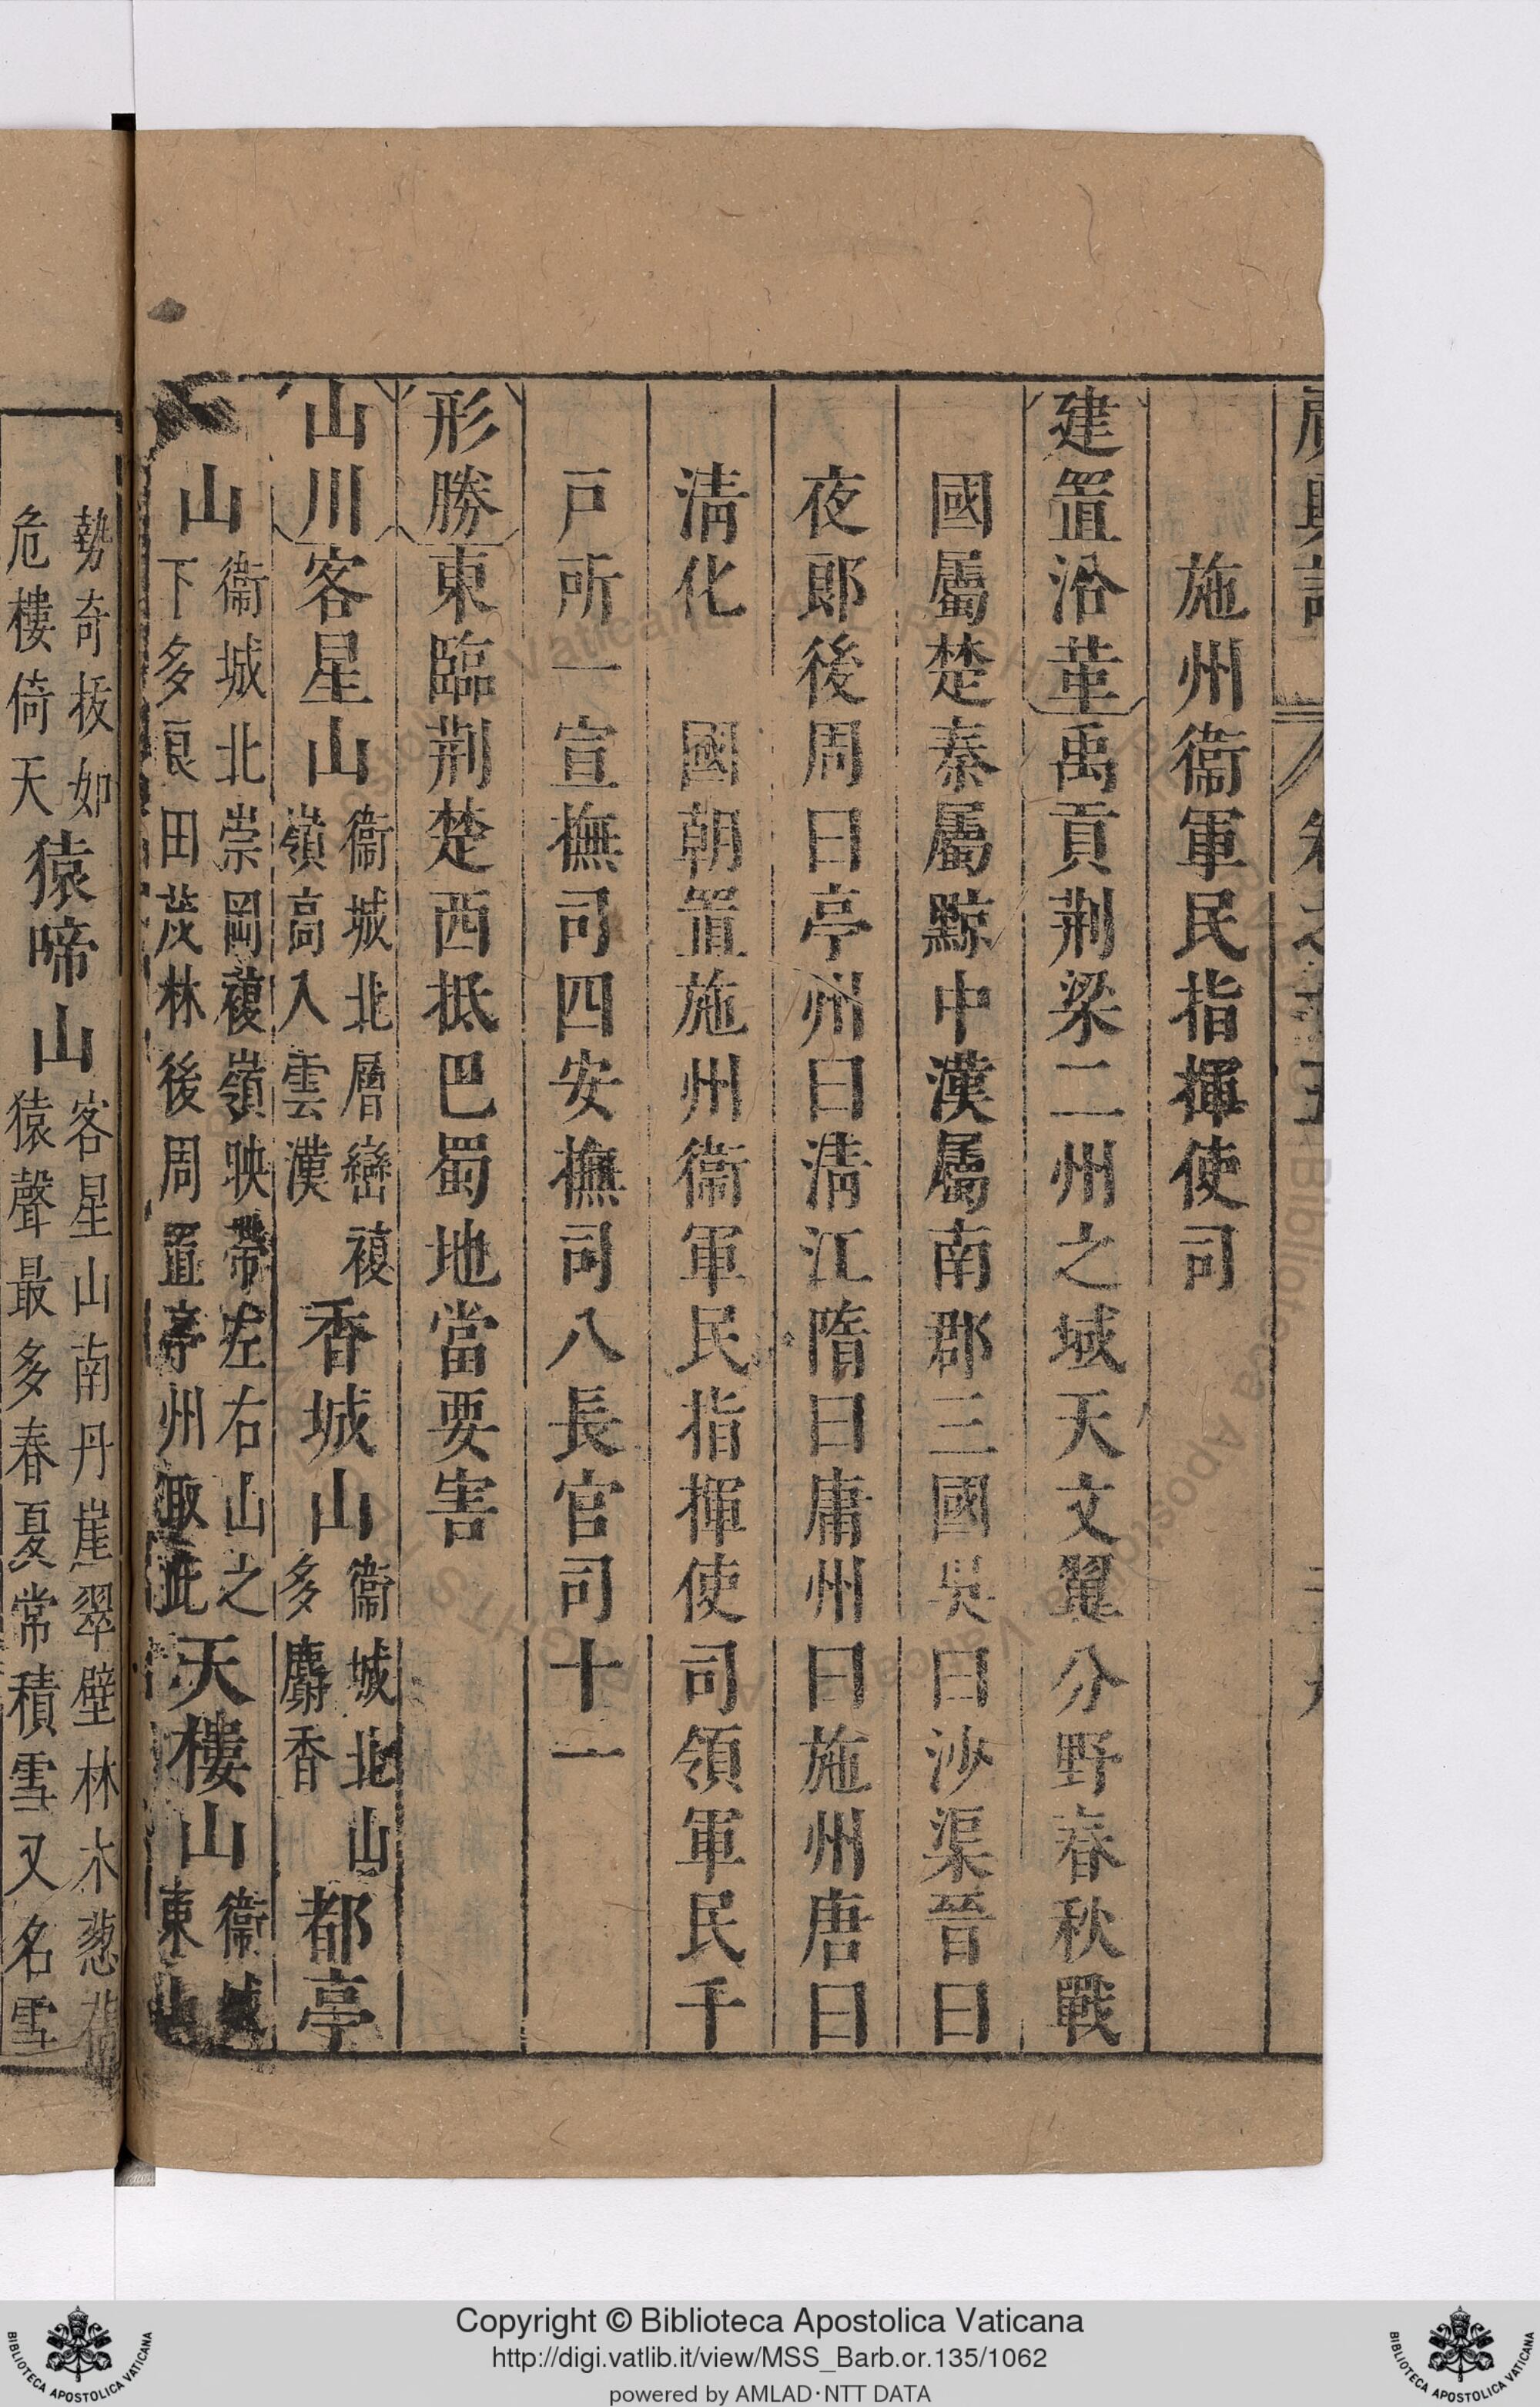 施州衞軍民指揮使司
建置沿革禹貢荆梁二州之域天文翼分野春秋戰
國屬楚秦屬黥中漢屬南郡三國吳曰沙渠晉曰
夜郎後周曰亭州曰淸江隋曰庸州曰施州唐曰
淸化　國朝置施州衞軍民指揮使司領軍民千
戸所一宣撫司四安撫司八長官司十一
形勝東臨荆楚西抵巴蜀地當要害
山川客星山衞城北層巒複嶺高入雲漢香城山衞城北山多麝香都亭
山衞城北崇岡複嶺映帶左右山之下多良田茂林後周置亭州取此天樓山衞城東山
勢奇拔如危樓倚天猿啼山客星山南丹崖翠壁林木葱蒨猿聲最多春夏常積雪又名雪
Copyright © Biblioteca Apostolica Vaticana
http://digi.vatlib.it/view/MSS_Barb.or.135/1062
powered by AMLAD·NTT DATA
BIBLIOTECA APOSTOLICA VATICANA
BIBLIOTECA APOSTOLICA VATICANA